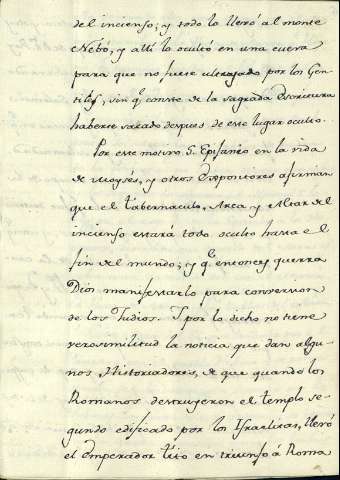 del incienso; y todo lo llevó al monte
Nebó, y allí lo ocultó en una cueva
para que no fuese ultrajado por los Gen-
tiles, sin q.e conste de la sagrada Escritura
haberse sacado despues de este lugar oculto.
Por este motivo S. Epifanio en la vida
de Moysés, y otros Expositores afirman
que el Tabernaculo, Arca y Altar del
incienso estará todo oculto hasta el
fin del mundo; y q.e entonces querrá
Dios manifestarlo para conversion
de los Judios. Y por lo dicho no tiene
verosimilitud la noticia que dan algu-
nos Historiadores, de que quando los
Romanos destruyeron el templo se-
gundo edificado por los Israelitas, llevó
el Emperador Tito en triunfo á Roma